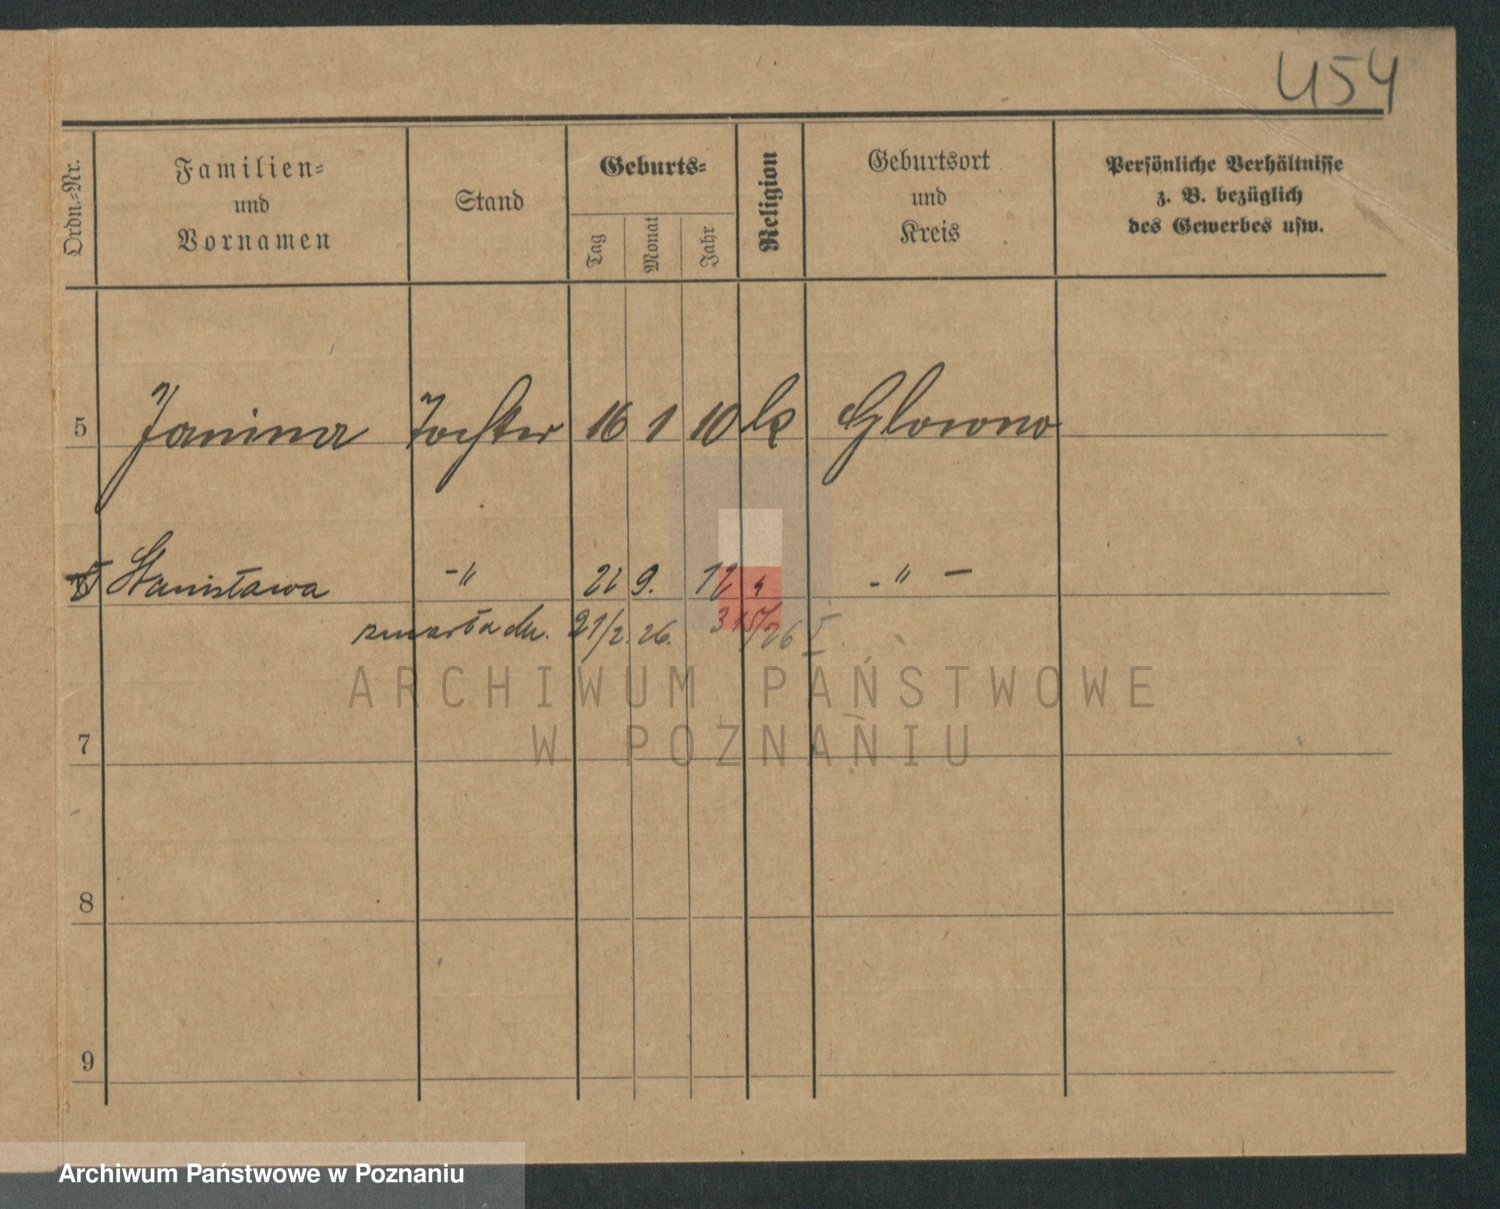 454
Ordn.=Nr.
Familien=
und
Vornamen
Stand
Geburts=
Tag
Monat
Jahr
Religion
Geburtsort
und
Kreis
Persönliche Verhältnisse
z. B. bezüglich
des Gewerbes usw.
5 Janina Tochter 16 1 10 k Glowno
6 Stanisława -"- 9. 12 - " -
zmarła dn. 21/2. 26.
ARCHIWUM PAŃSTWOWE
W POZNANIU
7
8
9
Archiwum Państwowe w Poznaniu